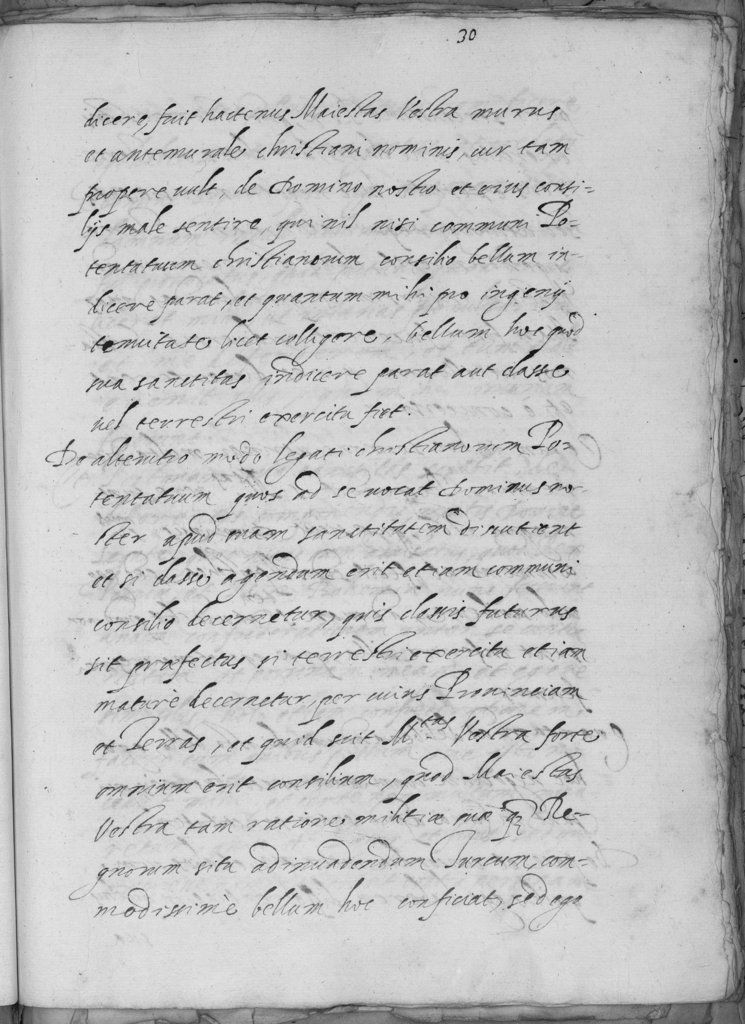 30
dicere, fuit hactenus Maiestas Vestra murus
et antemurale christiani nominis, cur tam
propere uult, de Domino nostro et eius consi-
lijs male sentire, qui nil nisi communi Po-
tentatuum christianorum consilio bellum in-
dicere parat, et quantum mihi pro ingenij
tenuitate licet colligere, bellum hoc quod
sua sanctitas indicere parat aut classe
uel terrestri exercitu fiet.
De alterutro modo legati christianorum Po-
tentatuum quos ad se uocat Dominus no-
ster apud suam sanctitatem discutient
et si classe agendum erit etiam communi
consilio decernetur, quis classis futurus
sit praefectus si terrestri exercitu etiam
mature decernetur, per cuius Prouinciam
et Terras, et quid scit M.tas Vestra forte
omnium erit consilium, quod Maiestas
Vestra tam ratione militiae suae q Re-
gnorum situ ad inuadendum Turcum com-
modissime bellum hoc conficiat, sed ego